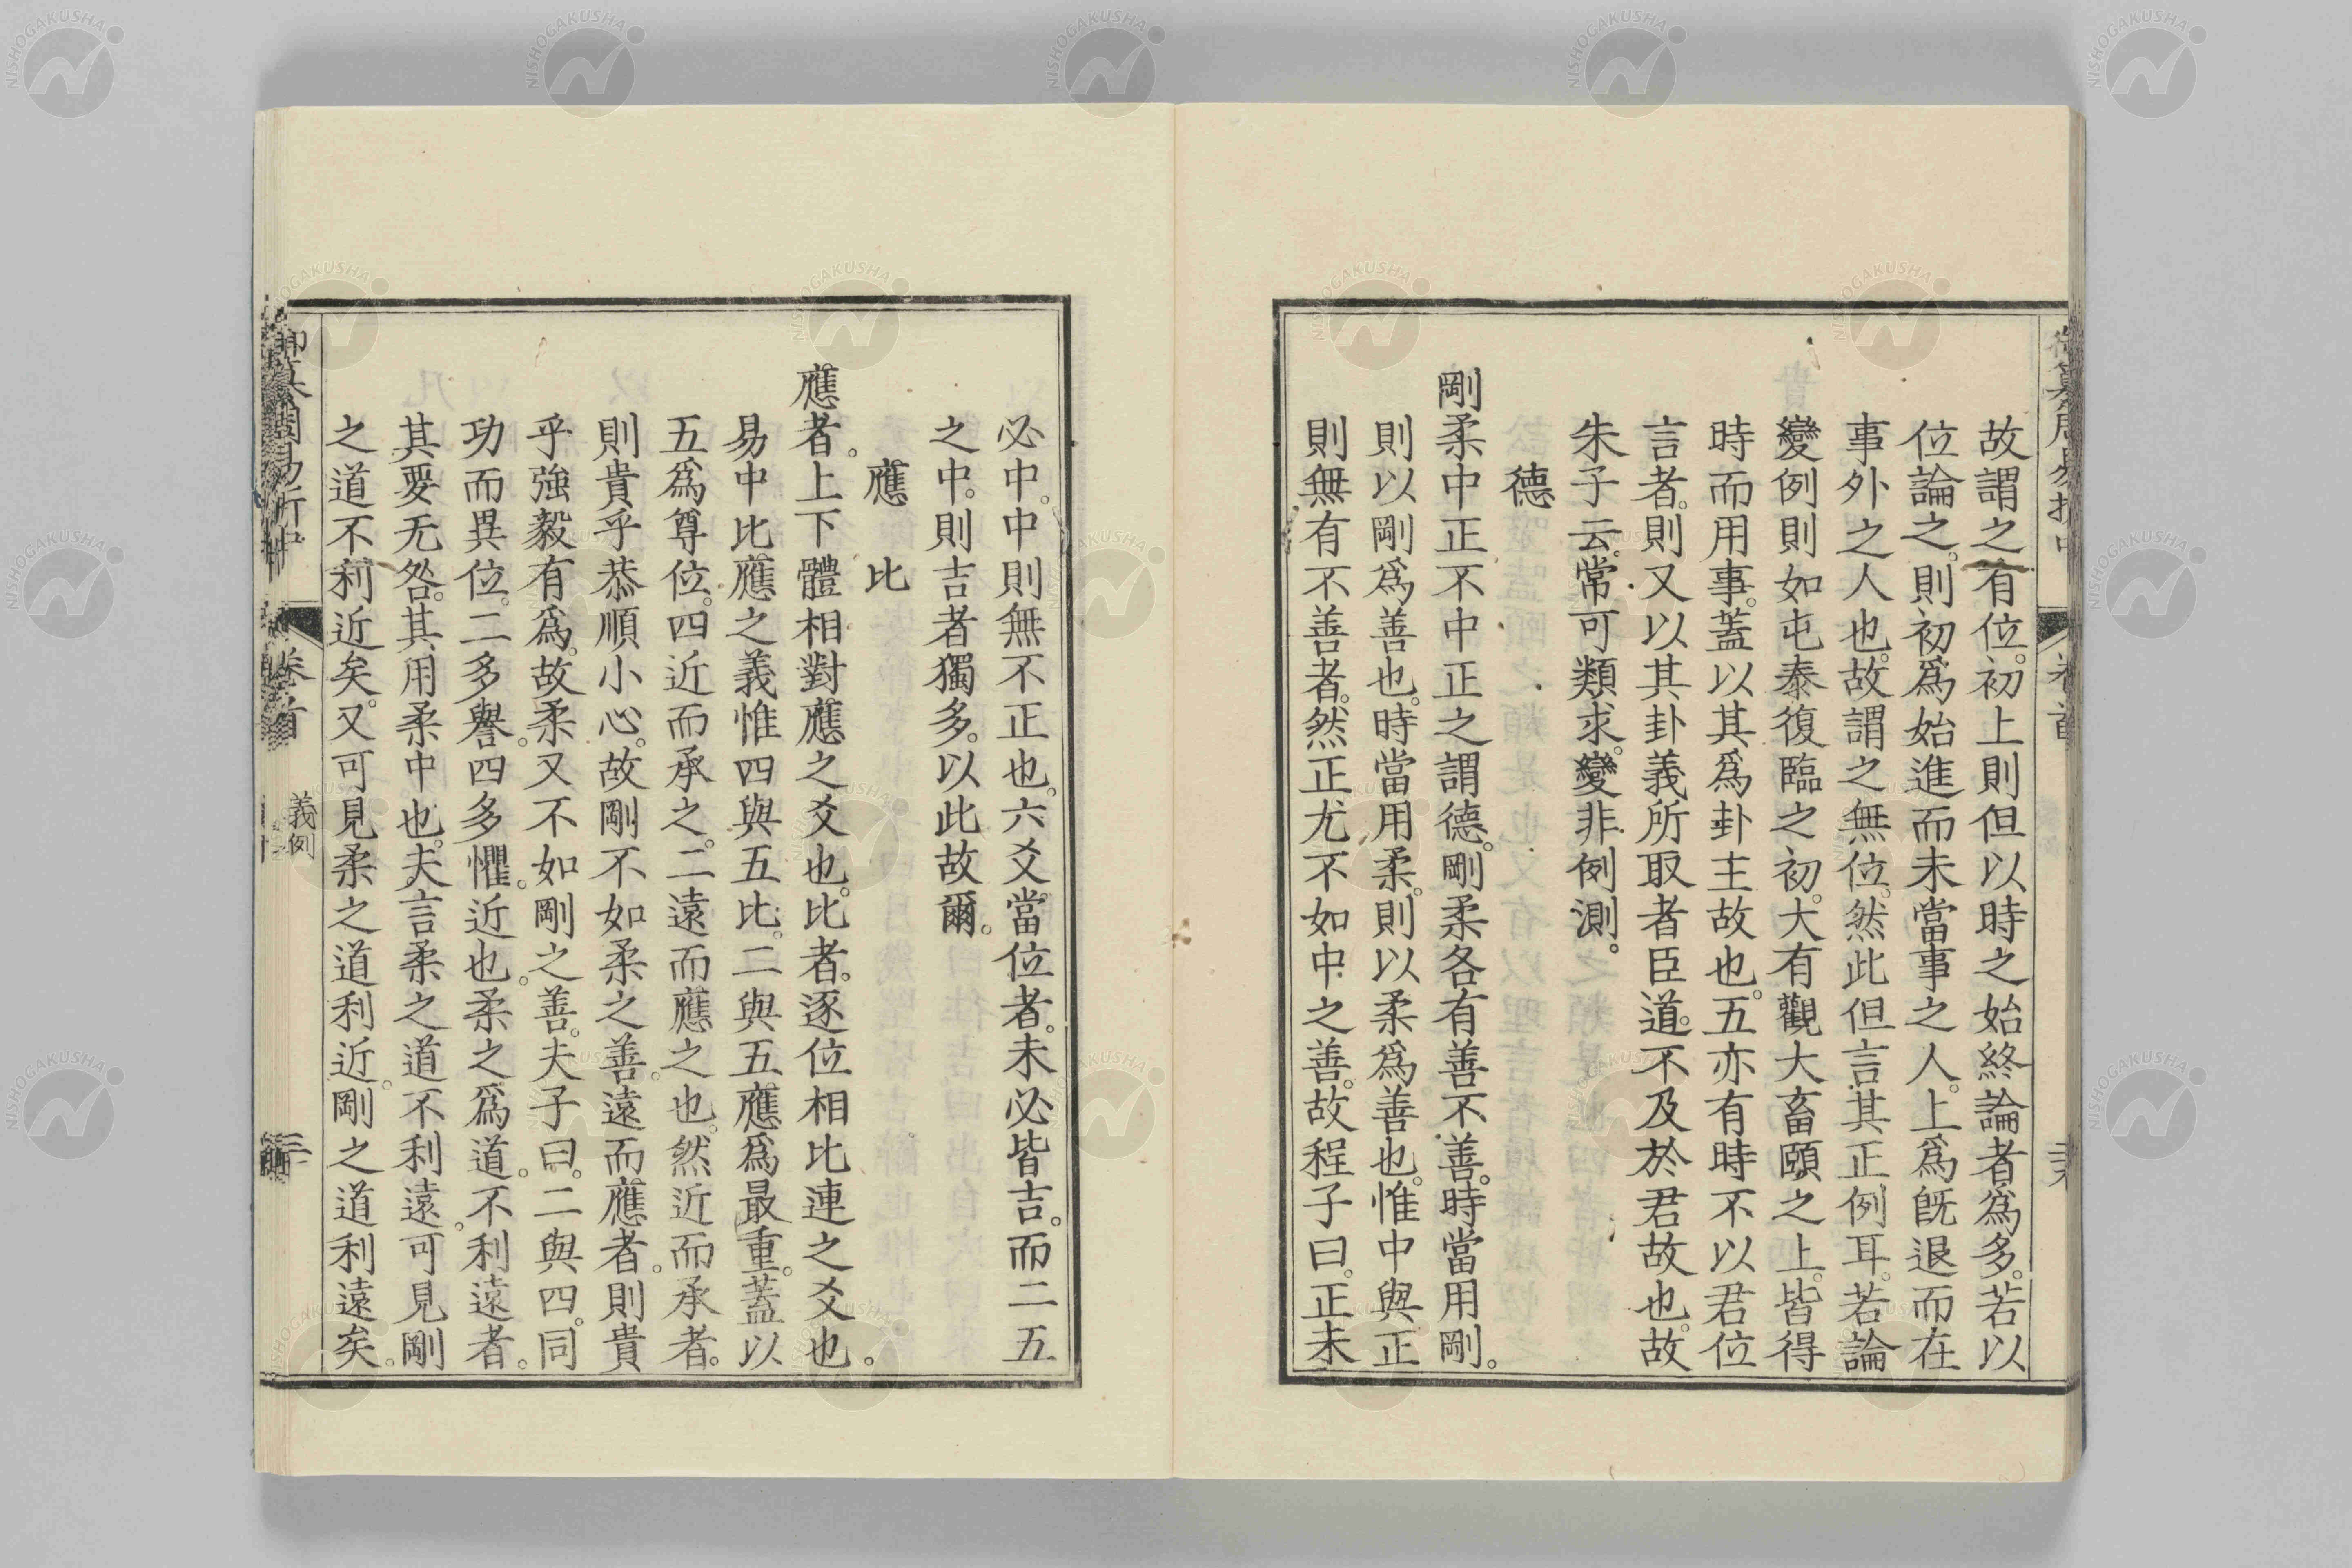 御纂周易折中
卷首
故謂之有位。初上則但以時之始終論者爲多。若以
位論之。則初爲始進而未當事之人。上爲旣退而在
事外之人也。故謂之無位。然此但言其正例耳。若論
變例則如屯泰復臨之初。大有觀大畜頤之上。皆得
時而用事。蓋以其爲卦主故也。五亦有時不以君位
言者。則又以其卦義所取者臣道。不及於君故也。故
朱子云。常可類求。變非例測。
德
剛柔中正不中正之謂德。剛柔各有善不善。時當用剛。
則以剛爲善也。時當用柔。則以柔爲善也。惟中與正
則無有不善者。然正尤不如中之善。故程子曰。正未
必中。中則無不正也。六爻當位者。未必皆吉。而二五
之中。則吉者獨多。以此故爾。
應 比
應者。上下體相對應之爻也。比者。逐位相比連之爻也。
易中比應之義惟四與五比。二與五應爲最重。蓋以
五爲尊位。四近而承之。二遠而應之也。然近而承者。
則貴乎恭順小心。故剛不如柔之善。遠而應者。則貴
乎強毅有爲。故柔又不如剛之善。夫子曰。二與四。同
功而異位。二多譽。四多懼。近也。柔之爲道。不利遠者。
其要无咎。其用柔中也。夫言柔之道不利遠。可見剛
之道不利近矣。又可見柔之道利近。剛之道利遠矣。
御纂周易折中
卷首
義例
NISHOGAKUSHA